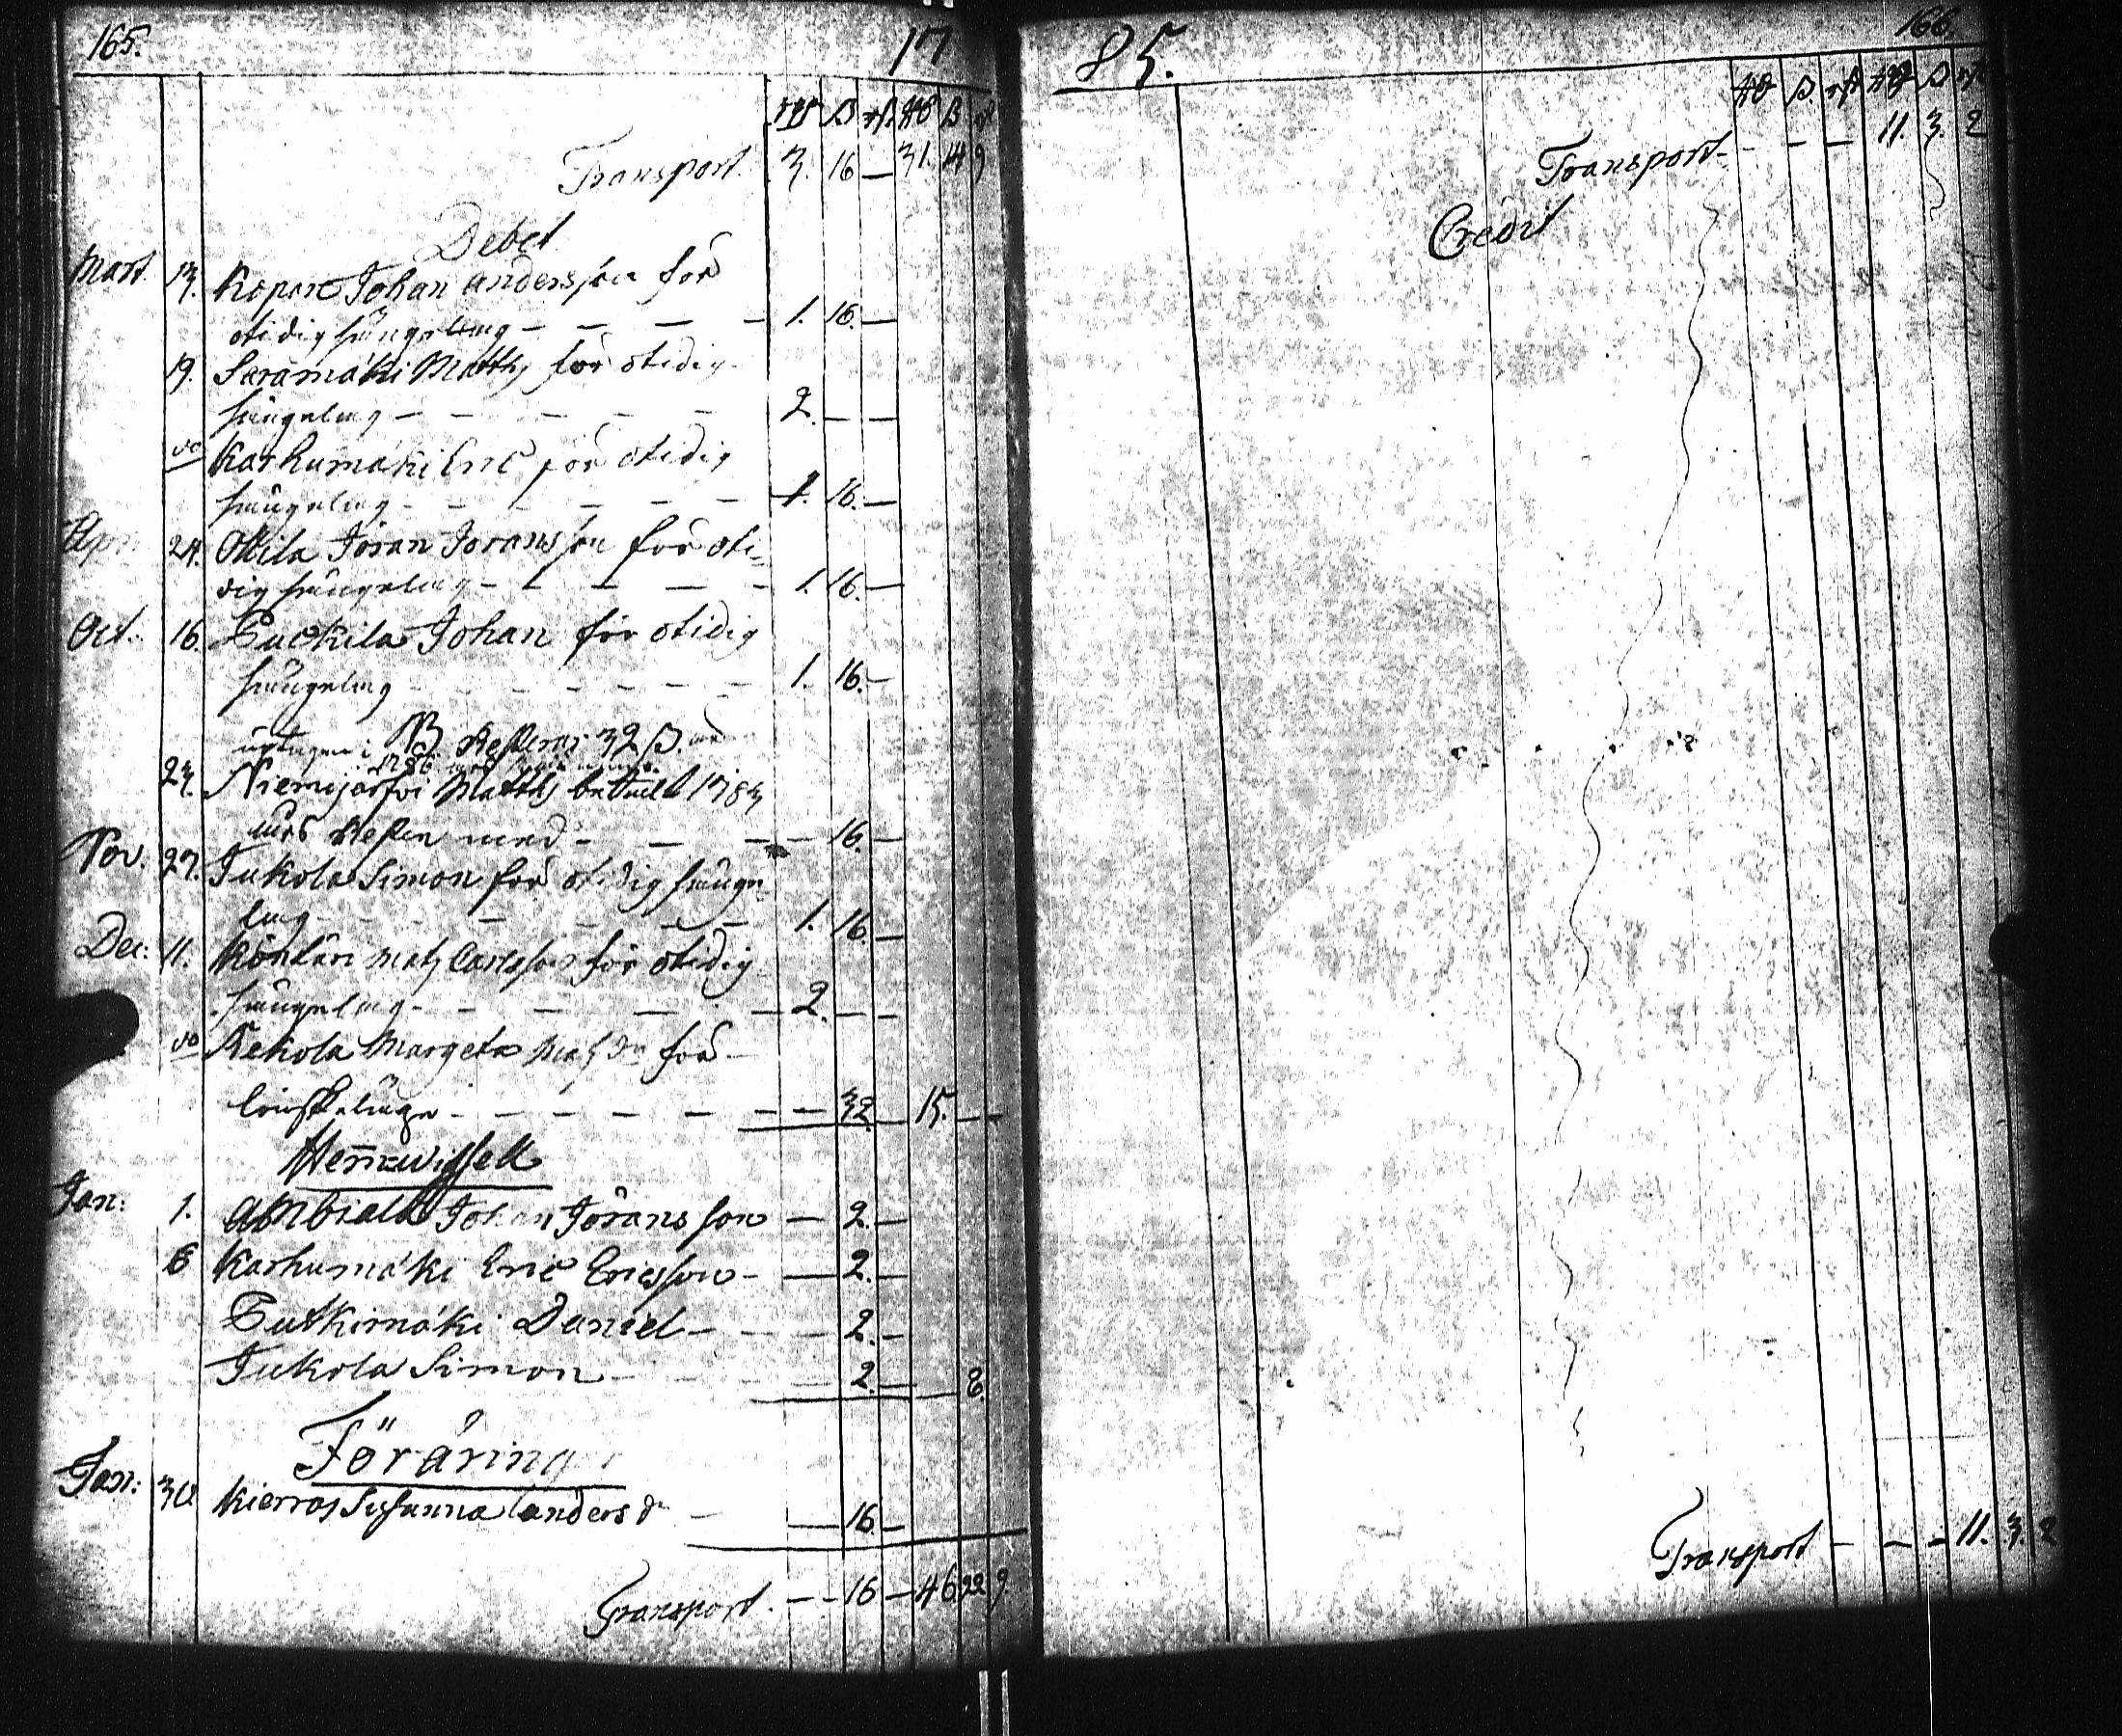 165. 17
Rd ß rst Rd ß rst
Transport. 3. 16 — 31. 14 9
Debet
Mart. 13. Kopare Johan andersson för
otidig sängelag — — — — 1. 16. —
19. Saramäki Matths för otidig
sängelag — — — — — 2. — —
do Karhumäki Eric för otidig
sängelag — — — — — 1. 16. —
Apr: 24. Okila Jöran Joransson för oti-
dig sängelag — — — — — 1. 16. —
Oct: 16. Luckila Johan för otidig
sängelag — — — — — — 1. 16. —
uptagen i NB Resterar 32 ß.
1786
23. Niemijärfvi Matths betalt 1783
års Resten med — — — — 16. —
Nov. 27. Jukola Simon för otidig sänge-
lag — — — — — — 1. 16. —
Dec: 11. Köntäri Matz Carlsson för otidig
sängelag — — — — — 2. — —
do Rekola Margeta Matzdr för
— — — — — — 32. — 15. — —
Hemwissell
Jan: 1. Johan Jöransson — 2. —
6 Karhumäki Eric Ericsson — — 2. —
Putkimäki Daniel — — — 2. —
Jukola Simon — — — — 2. — — 8.
Föräringar
Jan: 30. Kierros Susanna andersdr — — 16. —
Transport. — — 16 — 46 22 9
85. 166.
Rd ß. rst Rd ß rst
Transport — — — — 11. 3. 2
Credit
Transport — — — 11. 3. 2